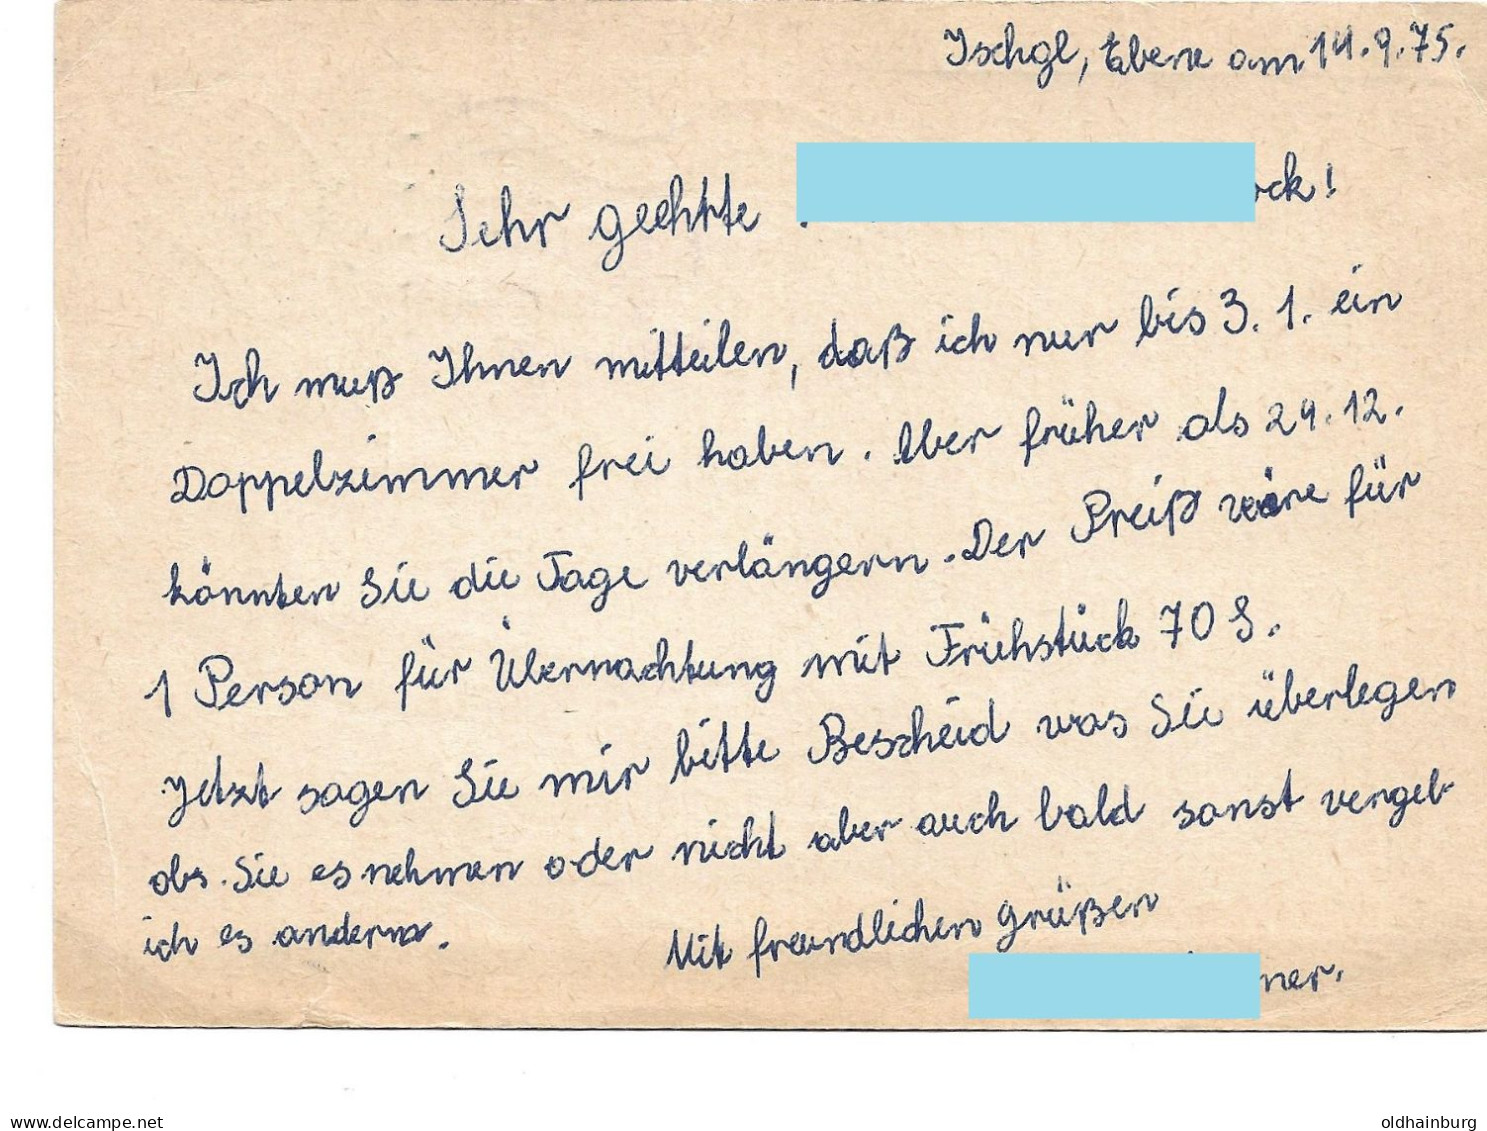 Ischgl, Ebene am 14.9.75.
Sehr geehrte ock!
Ich muß Ihnen mitteilen, daß ich nur bis 3. 1. ein
Doppelzimmer frei haben. Aber früher als 24.12.
könnten Sie die Tage verlängern. Der Preiß wäre für
1 Person für Übernachtung mit Frühstück 70 S.
Jetzt sagen Sie mir bitte Bescheid was Sie überlegen
obs. Sie es nehmen oder nicht aber auch bald sonst vergeb
ich es anderm.
Mit freundlichen Grüßen
ner.
delcampe.net
oldhainburg